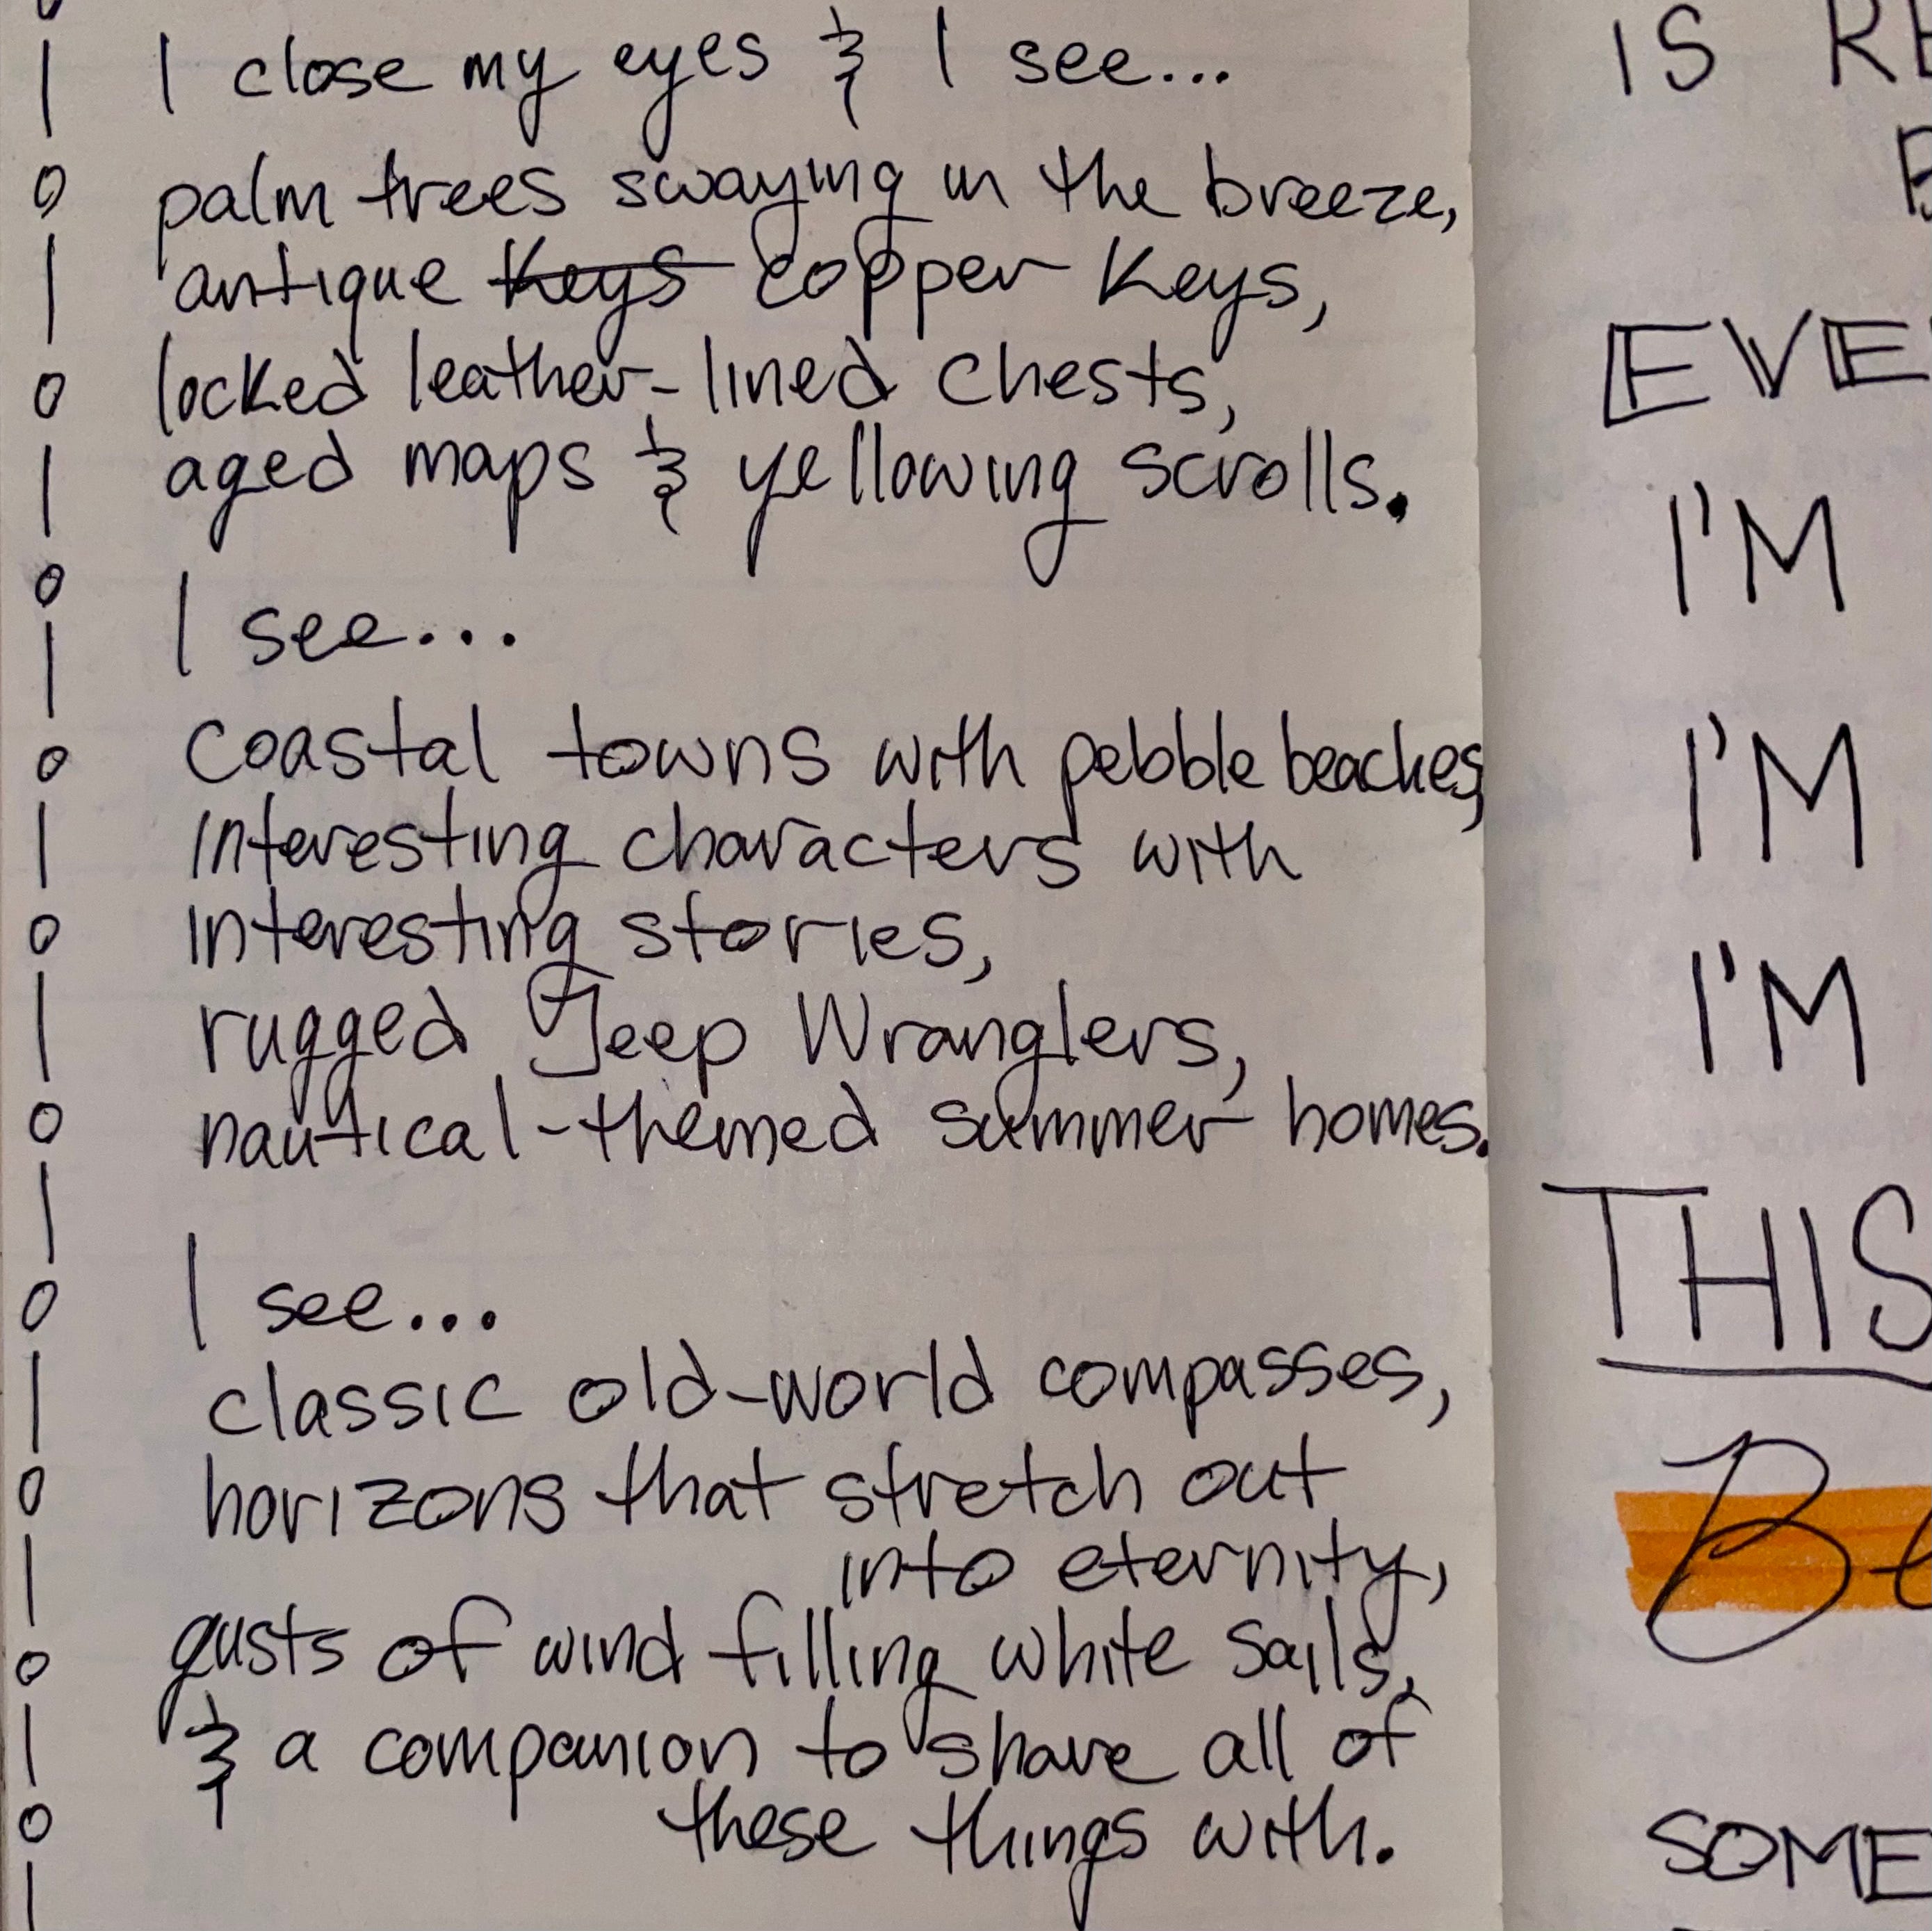 I close my eyes & I see...
palm trees swaying in the breeze,
antique Keys copper Keys,
locked leather-lined chests,
aged maps & yellowing scrolls.
I see...
coastal towns with pebble beaches,
interesting characters with
interesting stories,
rugged Jeep Wranglers,
nautical-themed summer homes.
I see...
classic old-world compasses,
horizons that stretch out
into eternity,
gusts of wind filling white sails,
& a companion to share all of
these things with.
IS
I'M
I'M
I'M
THIS
SOME